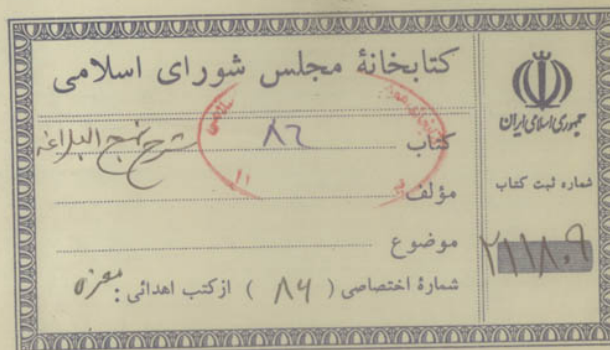 کتابخانهٔ مجلس شورای اسلامی
کتاب ٨٦ شرح نهج البلاغه
مؤلف
موضوع
شمارهٔ اختصاصی ( ٨٤ ) از کتب اهدائی :
جمهوری اسلامی ایران
شماره ثبت کتاب
٢١١٨٠٩